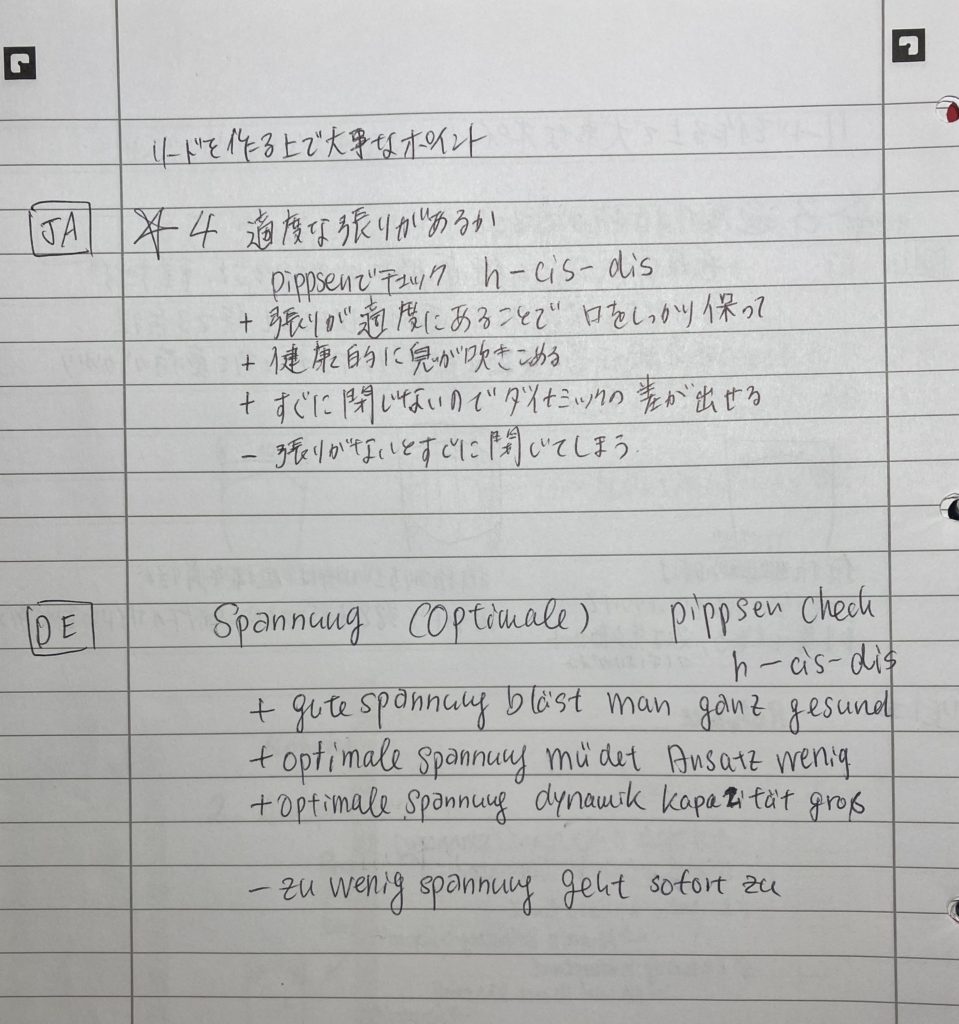 リードを作る上で大事なポイント
JA ☆ 4 適度な張りがあるか
pippsenでチェック h-cis-dis
+ 張りが適度にあることで 口をしっかり保って
+ 健康的に息が吹きこめる
+ すぐに閉じないのでダイナミックの差が出せる
- 張りがないとすぐに閉じてしまう.
DE Spannung (Optimale) pippsen Check
h-cis-dis
+ gute spannung bläst man ganz gesund
+ optimale spannung müdet Ansatz wenig
+ optimale spannung dynamik kapazität groß
- zu wenig spannung geht sofort zu